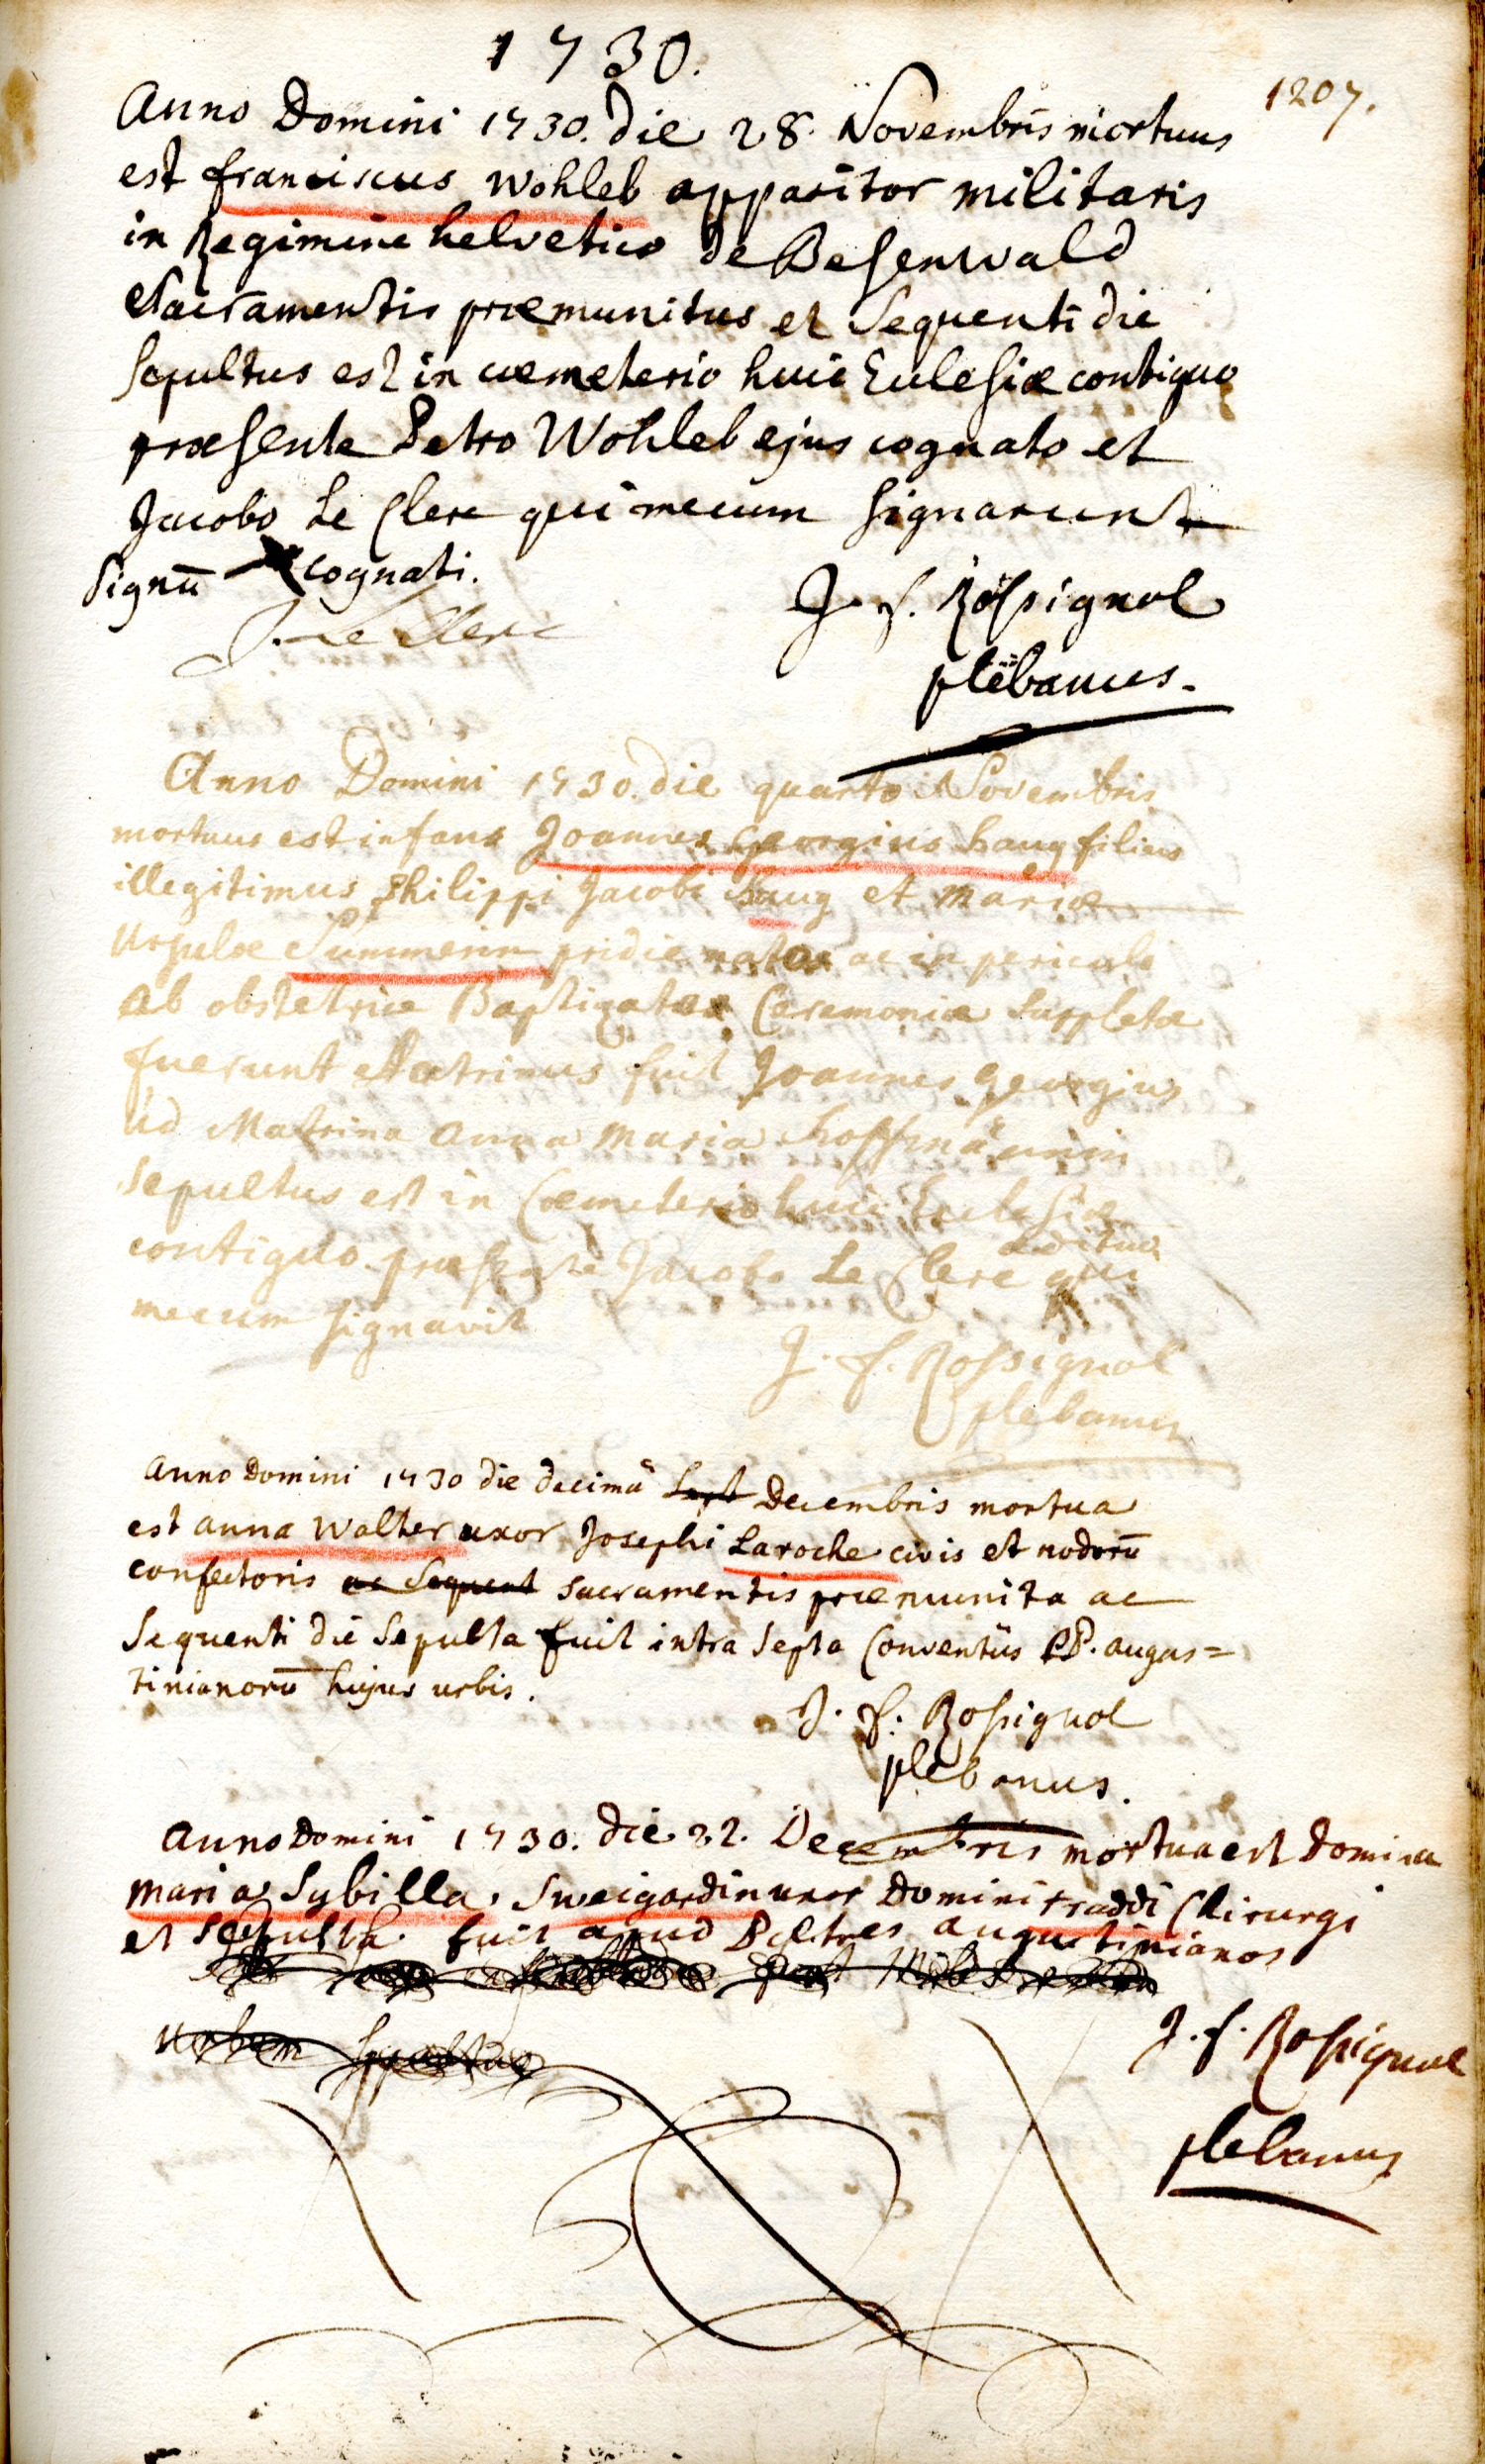 1730.
1207.
Anno Domini 1730. die 28. Novembris mortuus
est franciscus Wohleb apparitor militaris
in Regimine helvetico de Besenwald
Sacramentis præmunitus et Sequenti die
Sepultus est in cœmeterio huic Ecclesiæ contiguo
præsente Petro Wohleb ejus cognato et
Jacobo Le Clerc qui mecum Signarunt
Signū cognati.
J. Le Clerc
J. f. Rossignol
plebanus.
Anno Domini 1730. die quarto Novembris
mortuus est infans Joannes Georgius haug filius
illegitimus Philippi Jacobi haug et Mariæ
Ursulæ Summerin pridie natus ac in periculo
ab obstetrice Baptizatus Ceremoniæ Suppletæ
fuerunt Patrinus fuit Joannes Georgius
Ud Matrina anna Maria hoffmännin
Sepultus est in Cœmeterio huic Ecclesiæ
contiguo præsente Jacobo Le Clerc ædituo qui
mecum Signavit
J. f. Rossignol
plebanus
Anno Domini 1730 die decimâ Sept Decembris mortua
est anna Walter uxor Josephi Laroche civis et nodorū
confectoris ac Sequent Sacramentis præmunita ac
Sequenti die Sepulta fuit intra Septa Conventûs PP. augus=
tinianorū hujus urbis.
J. f. Rossignol
plebanus.
Anno Domini 1730. die 22. Decembris mortua est Domina
maria Sybilla Sweigardin uxor Domini traddi Chirurgi
et Sepulta fuit apud Patres augustinianos
urbem
J. f. Rossignol
plebanus